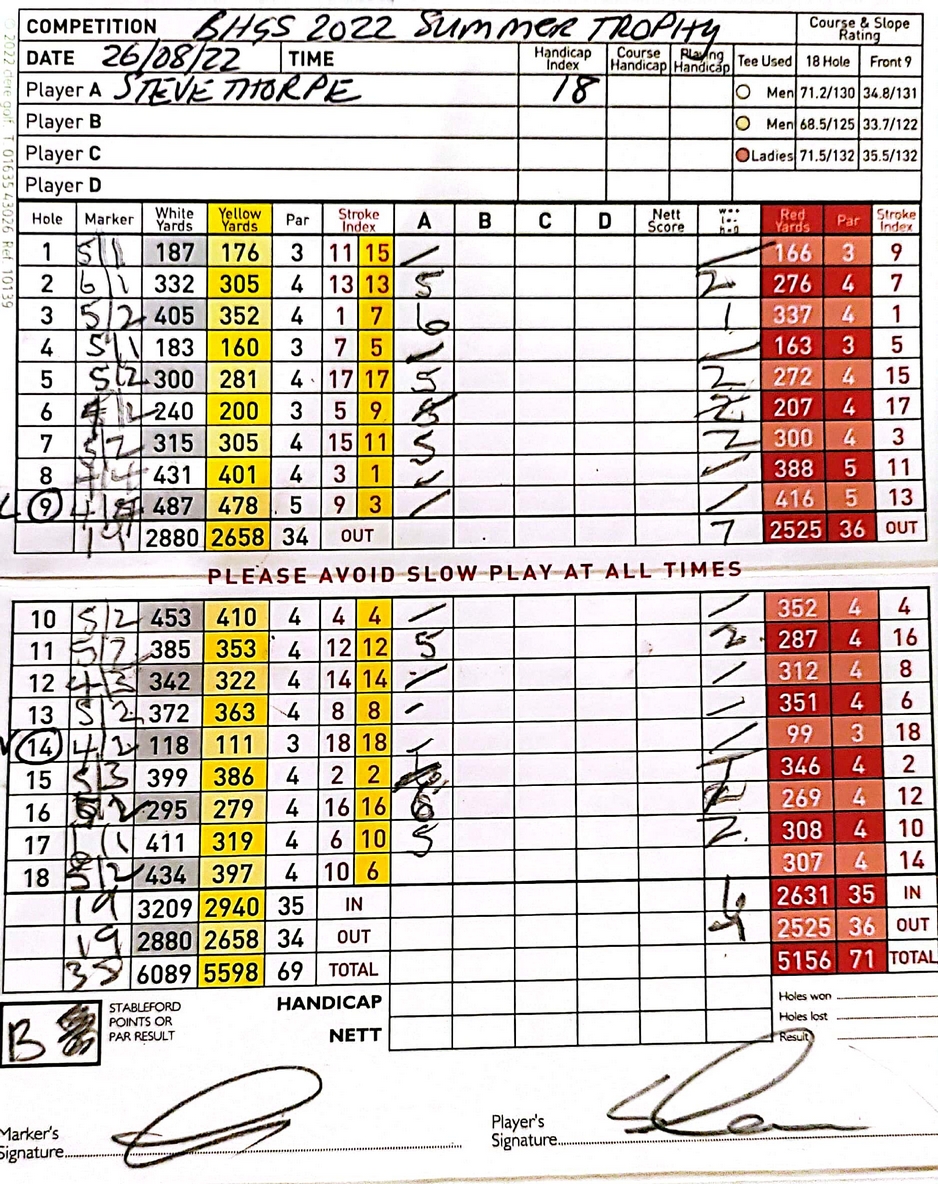 COMPETITION BHGS 2022 SUMMER TROPHY Course & Slope Rating
DATE 26/08/22 TIME Handicap Index Course Handicap Playing Handicap Tee Used 18 Hole Front 9
Player A STEVE THORPE 18 Men 71.2/130 34.8/131
Player B Men 68.5/125 33.7/122
Player C Ladies 71.5/132 35.5/132
Player D
Hole Marker White Yards Yellow Yards Par Stroke Index A B C D Nett Score Red Yards Par Stroke Index
1 5/1 187 176 3 11 15 / / 166 3 9
2 6/1 332 305 4 13 13 5 2 276 4 7
3 5/2 405 352 4 1 7 6 1 337 4 1
4 5/1 183 160 3 7 5 / / 163 3 5
5 5/2 300 281 4 17 17 5 2 272 4 15
6 240 200 3 5 9 2 207 4 17
7 5/2 315 305 4 15 11 5 2 300 4 3
8 431 401 4 3 1 / / 388 5 11
9 487 478 5 9 3 / / 416 5 13
19 2880 2658 34 OUT 7 2525 36 OUT
PLEASE AVOID SLOW PLAY AT ALL TIMES
10 5/2 453 410 4 4 4 / / 352 4 4
11 5/2 385 353 4 12 12 5 2 287 4 16
12 4/3 342 322 4 14 14 / / 312 4 8
13 5/2 372 363 4 8 8 / / 351 4 6
14 4/2 118 111 3 18 18 / / 99 3 18
15 5/3 399 386 4 2 2 346 4 2
16 295 279 4 16 16 269 4 12
17 411 319 4 6 10 5 2 308 4 10
18 5/2 434 397 4 10 6 307 4 14
19 3209 2940 35 IN 6 2631 35 IN
19 2880 2658 34 OUT 4 2525 36 OUT
38 6089 5598 69 TOTAL 5156 71 TOTAL
B STABLEFORD POINTS OR PAR RESULT HANDICAP Holes won
NETT Holes lost
Result
Marker's Signature Player's Signature
© 2022 T 01635 43026 Ref 10139